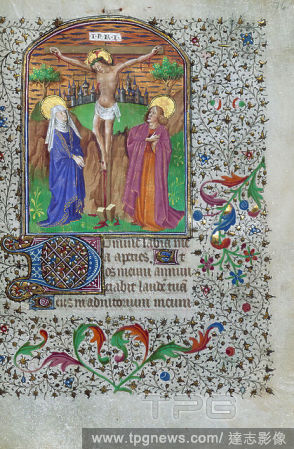 I·N·R·I·
Domine labia me
a aperies et
os meum annun
tiabit laudē tuā
eus in adiutorium meum
TPG
www.tpgnews.com / 達志影像